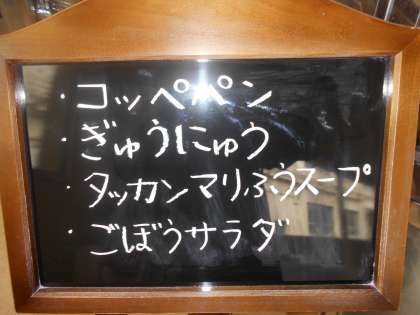 ・コッペペン
・ぎゅうにゅう
・タッカンマリふうスープ
・ごぼうサラダ